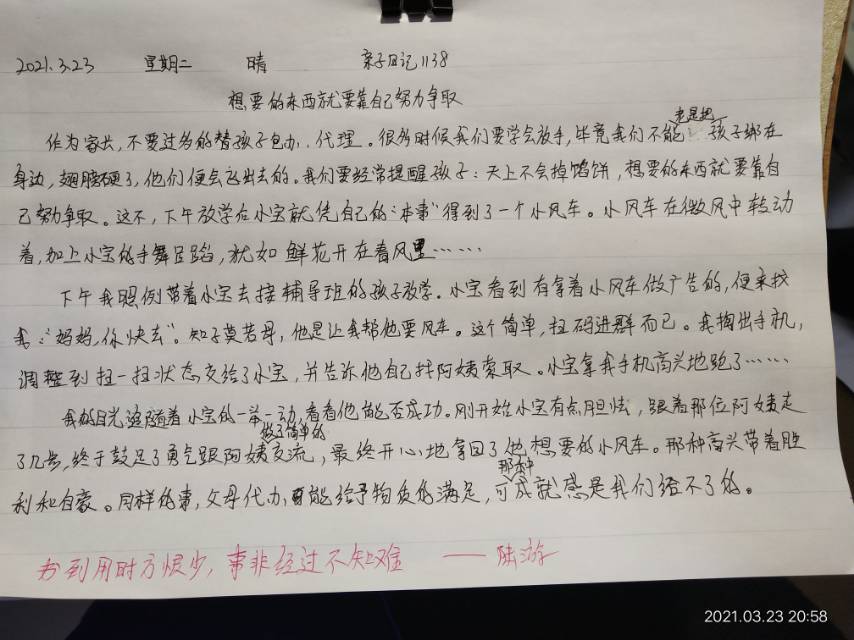 2021.3.23 星期二 晴 亲子日记1138
想要的东西就要靠自己努力争取
作为家长,不要过多的替孩子包办、代理。很多时候我们要学会放手,毕竟我们不能老是把孩子绑在
身边,翅膀硬了,他们便会飞出去的。我们要经常提醒孩子:天上不会掉馅饼,想要的东西就要靠自
己努力争取。这不,下午放学后小宝就凭自己的“本事”得到了一个小风车。小风车在微风中转动
着,加上小宝的手舞足蹈,犹如鲜花开在春风里……
下午我照例带着小宝去接辅导班的孩子放学。小宝看到有拿着小风车做广告的,便来找
我:“妈妈,你快去”。知子莫若母,他是让我帮他要风车。这个简单,扫码进群而已。我掏出手机,
调整到扫一扫状态交给了小宝,并告诉他自己找阿姨索取。小宝拿我手机高兴地跑了……
我的目光追随着小宝的一举一动,看看他能否成功。刚开始小宝有点胆怯,跟着那位阿姨走
了几步,终于鼓足了勇气跟阿姨做了简单的交流,最终开心地拿回了他想要的小风车。那种高兴带着胜
利和自豪。同样的事,父母代办,可能给予物质的满足,可那种成就感是我们给不了的。
书到用时方恨少,事非经过不知难 ——陆游
2021.03.23 20:58